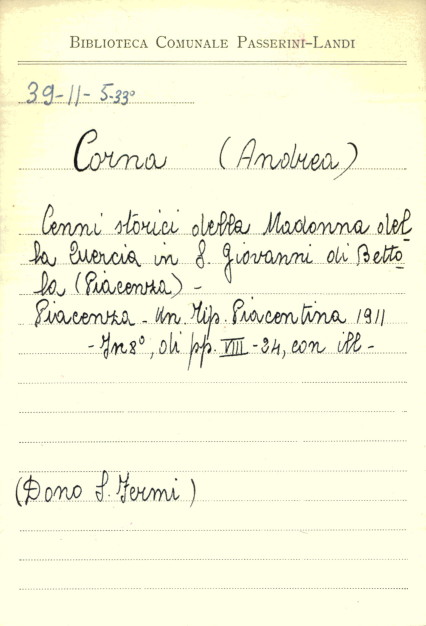 BIBLIOTECA COMUNALE PASSERINI-LANDI
39-11- 5-33°
Corna (Andrea)
Cenni storici della Madonna del
la Quercia in S. Giovanni di Betto
la (Piacenza) -
Piacenza - Un. Tip. Piacentina 1911
- In 8°, di pp. VIII - 24, con ill -
(Dono S. Fermi)